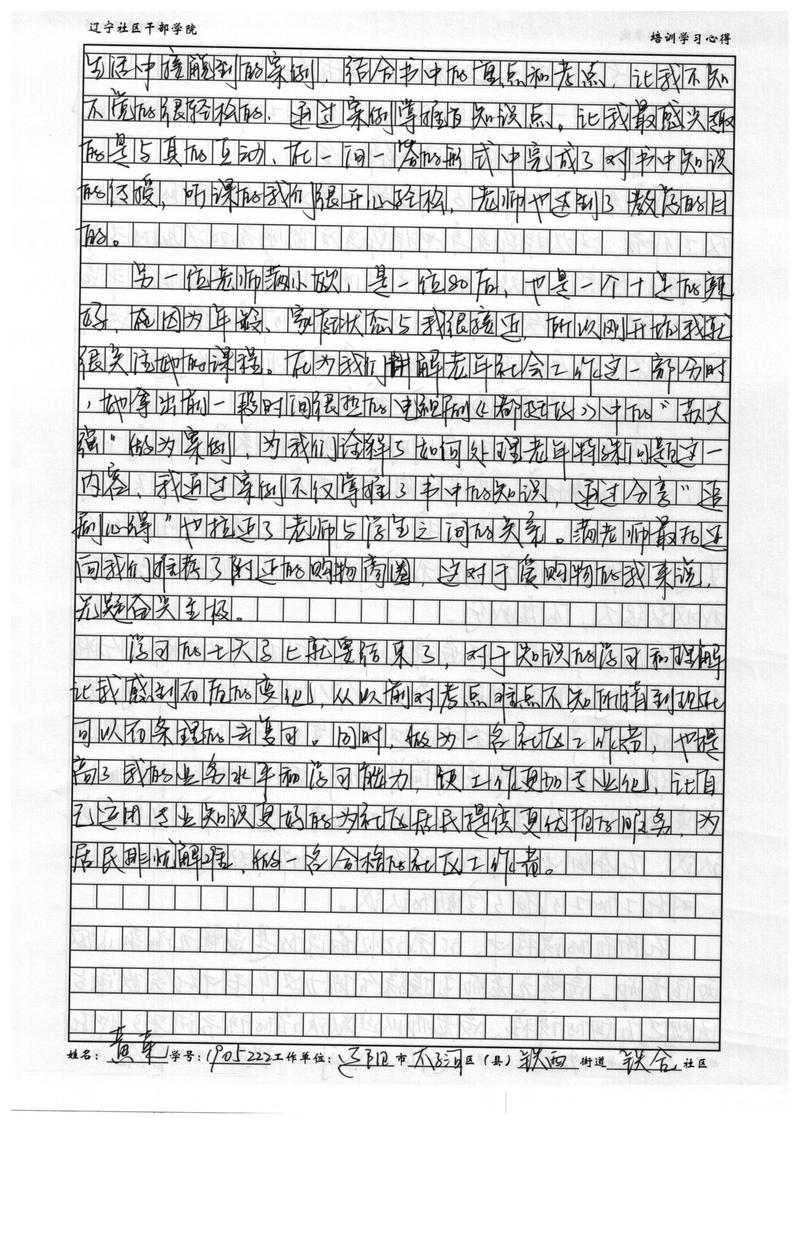 辽宁社区干部学院 培训学习心得
生活中接触到的案例，结合书中的重点和考点，让我不知
不觉的很轻松的，通过案例掌握了知识点。让我最感兴趣
的是与真的互动，在一问一答的形式中完成了对书中知识
的传授，听课的我们很开心轻松，老师也达到了教学的目
的。
另一位老师蔺小欢，是一位80后，也是一个十足的辣
妈，她因为年龄、家庭状态与我很接近，所以刚开始我就
很关注她的课程。在为我们讲解老年社会工作这一部分时
，她拿出前一段时间很热的电视剧《都挺好》中的“苏大
强”做为案例，为我们诠释了如何处理老年特殊问题这一
内容，我通过案例不仅掌握了书中的知识，通过分享“追
剧心得”也拉近了老师与学生之间的关系。蔺老师最后还
向我们推荐了附近的购物商圈，这对于爱购物的我来说，
无疑奋兴至极。
学习的七天马上就要结束了，对于知识的学习和理解
让我感到有质的变化，从以前对考点难点不知所措到现在
可以有条理的去复习。同时，做为一名社区工作者，也提
高了我的业务水平和学习能力，使工作更加专业化，让自
己运用专业知识更好的为社区居民提供更优质的服务，为
居民排忧解难，做一名合格的社区工作者。
姓名：黄 学号：1905222 工作单位：辽阳市 太子河区（县） 铁西街道 铁合社区